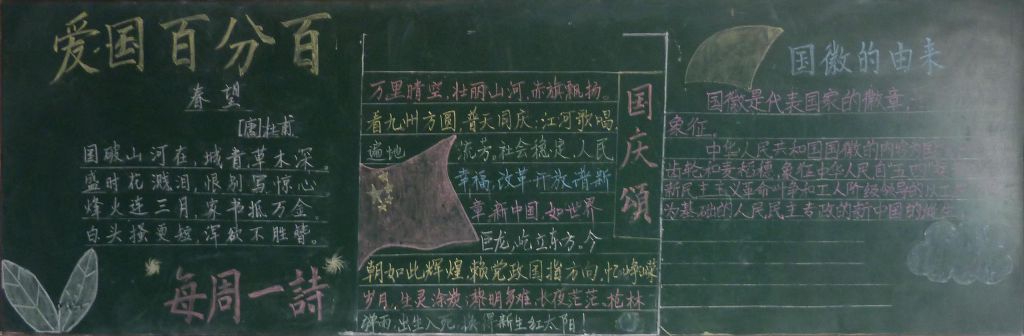 爱国百分百
春望
[唐]杜甫
国破山河在,城青草木深。
盛时花溅泪,恨别写惊心
烽火连三月,家书抵万金。
白头搔更短,浑欲不胜簪。
每周一詩
万里晴空,壮丽山河,赤旗飘扬。
看九州方圆,普天同庆;江河歌唱,
遍地 流芳。社会稳定,人民
幸福,改革开放,谱新
章,新中国,如世界
巨龙,屹立东方。今
朝如此辉煌,赖党政国指方向,忆峥嵘
岁月,生灵涂炭,黎明多难,长夜茫茫,枪林
弹雨,出生入死,换得新生红太阳!
国庆頌
国徽的由来
国徽是代表国家的徽章、
象征。
中华人民共和国国徽的内容为
齿轮和麦稻穗,象征中华人民自
新民主主义革命斗争和工人阶级领导的以工农
为基础的人民民主专政的新中国的诞生。